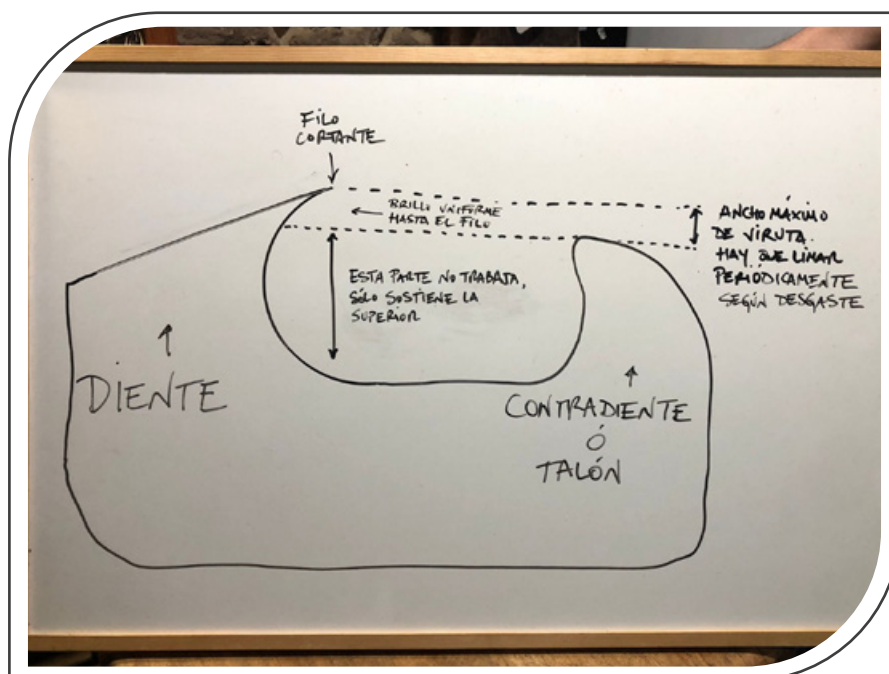 FILO
CORTANTE
BRILLO UNIFORME
HASTA EL FILO
ANCHO MÁXIMO
DE VIRUTA.
HAY QUE LIMAR
PERIÓDICAMENTE
SEGÚN DESGASTE
ESTA PARTE NO TRABAJA,
SÓLO SOSTIENE LA
SUPERIOR
DIENTE
CONTRADIENTE
Ó
TALÓN